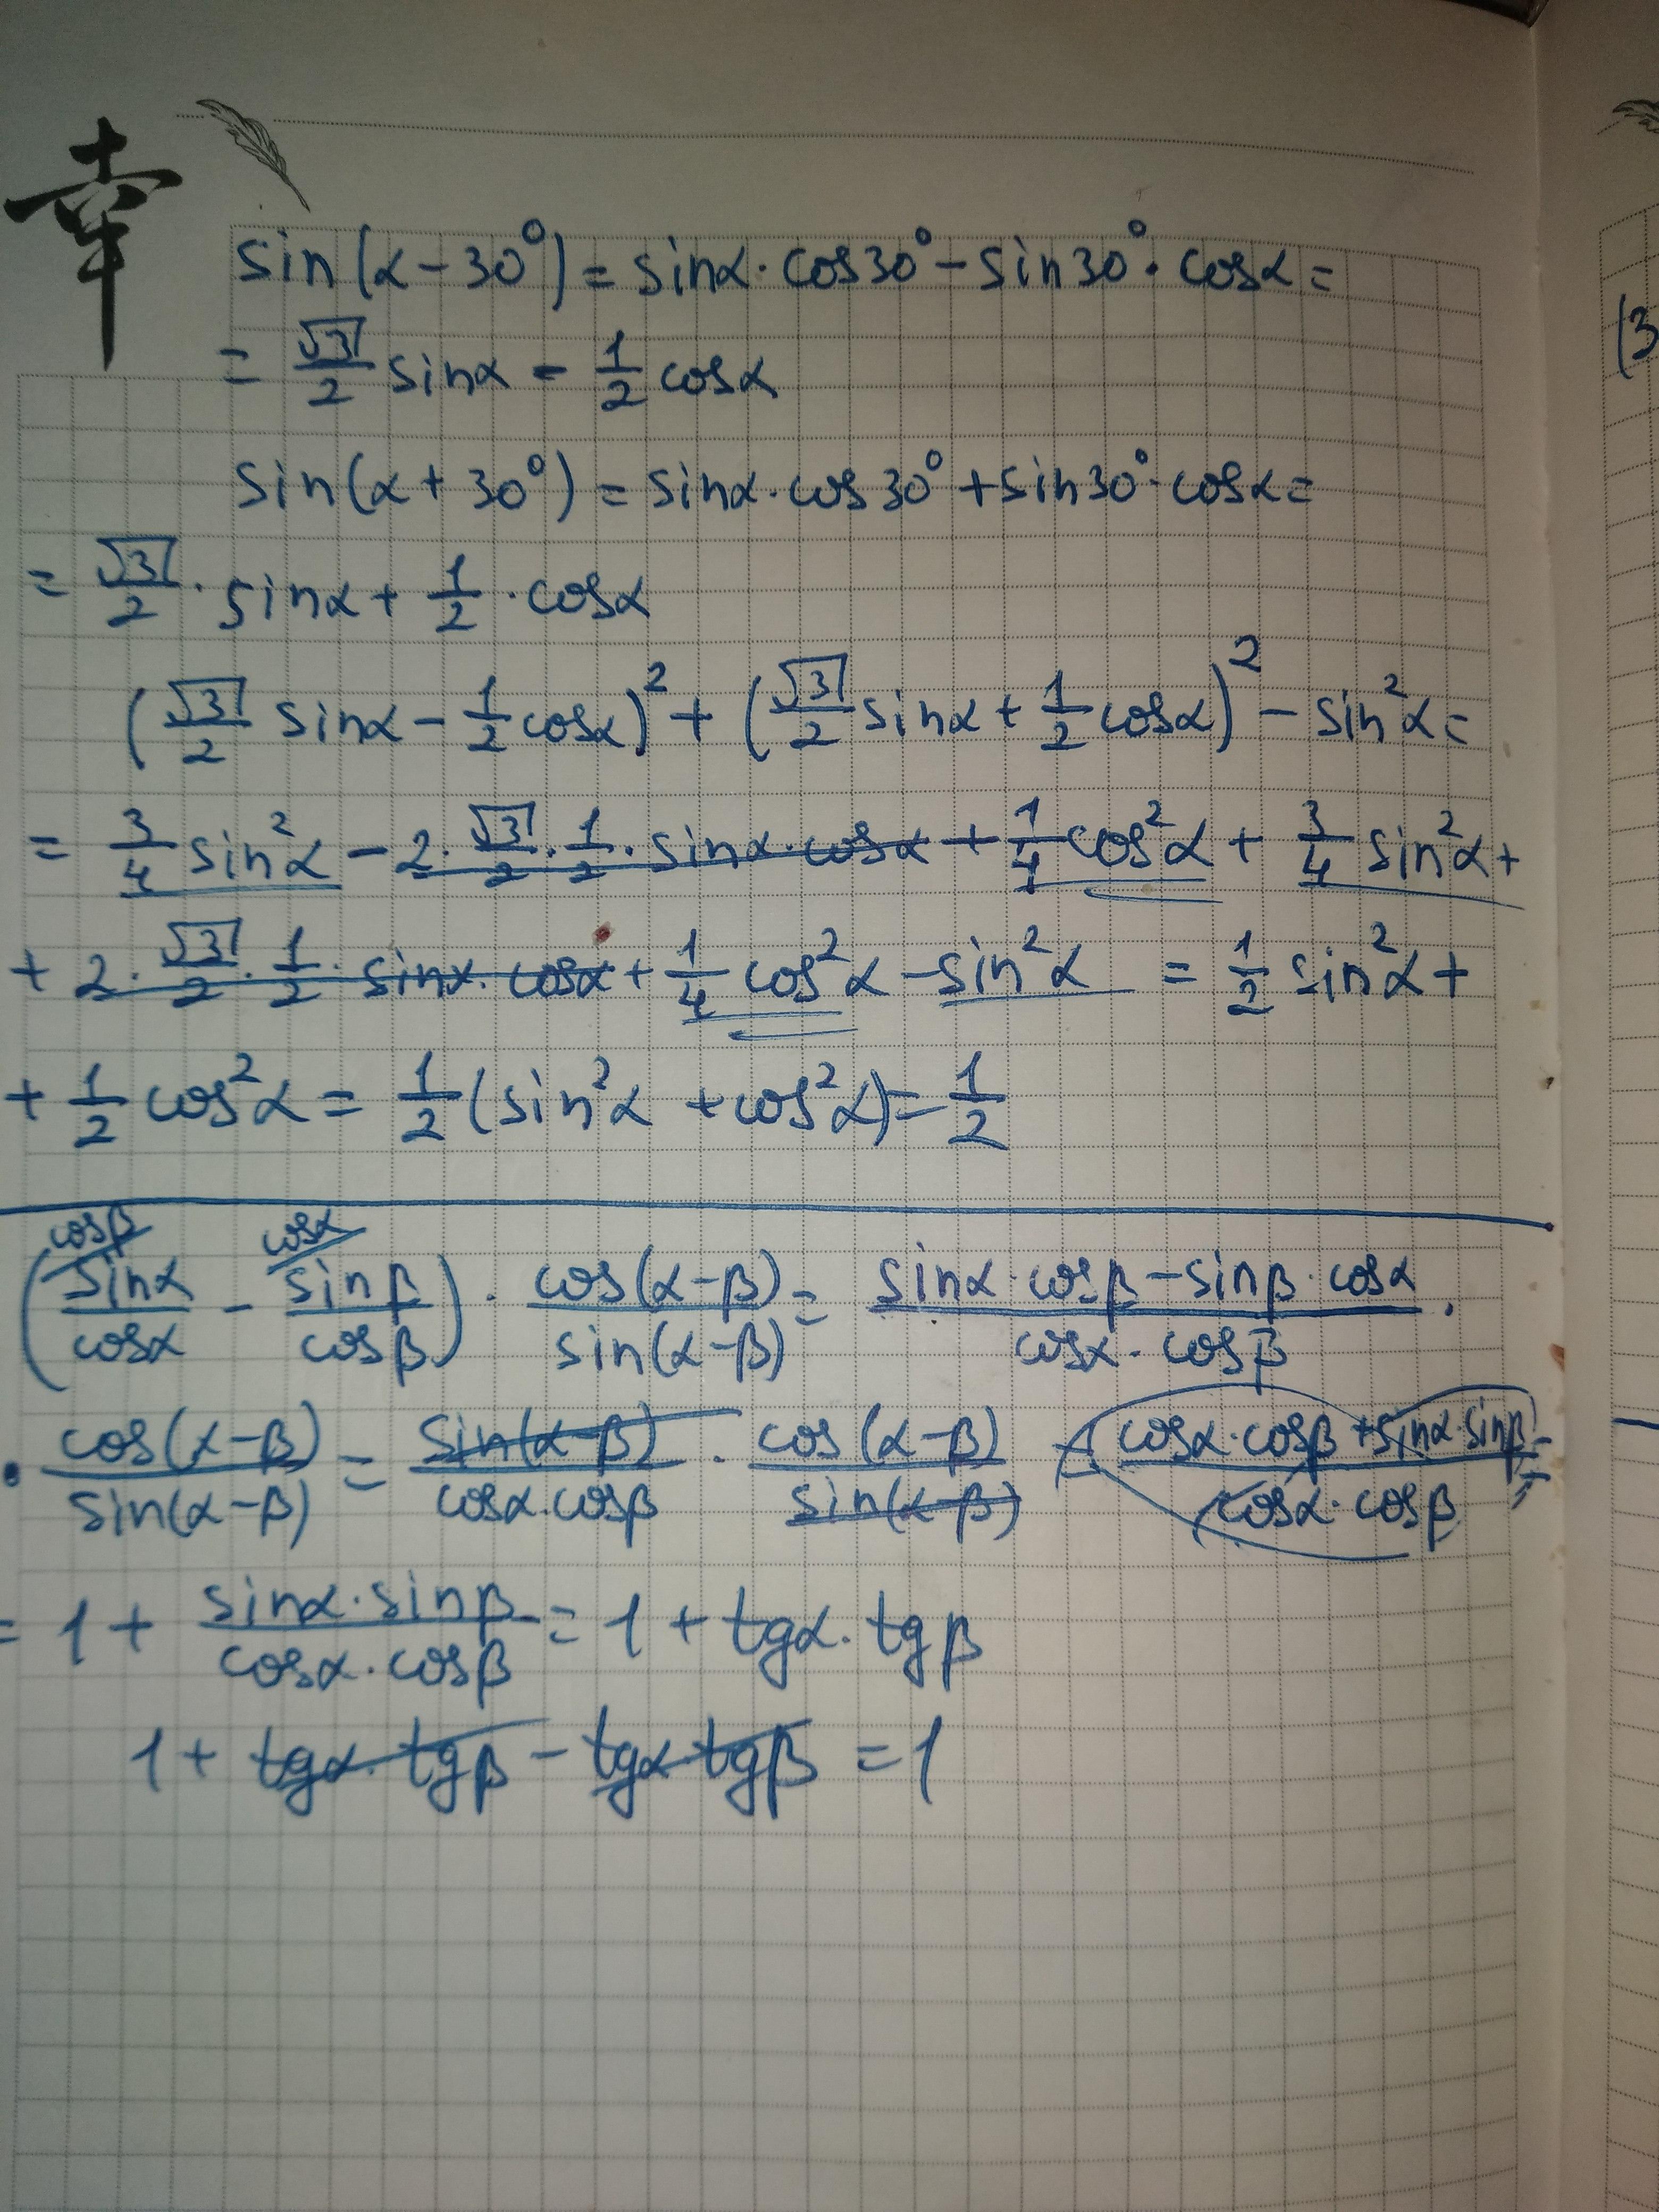 幸
sin(α-30°)=sinα·cos30°-sin30°·cosα=
= √3/2 sinα - 1/2 cosα
sin(α+30°)=sinα·cos30°+sin30°·cosα=
= √3/2 · sinα + 1/2 · cosα
(√3/2 sinα - 1/2 cosα)² + (√3/2 sinα + 1/2 cosα)² - sin²α =
= 3/4 sin²α - 2·√3/2·1/2·sinα·cosα + 1/4 cos²α + 3/4 sin²α +
+ 2·√3/2·1/2·sinα·cosα + 1/4 cos²α - sin²α = 1/2 sin²α +
+ 1/2 cos²α = 1/2 (sin²α + cos²α) = 1/2
cosβ cosα
(sinα/cosα - sinβ/cosβ) · cos(α-β)/sin(α-β) = (sinα·cosβ - sinβ·cosα)/(cosα·cosβ) ·
· cos(α-β)/sin(α-β) = sin(α-β)/(cosα·cosβ) · cos(α-β)/sin(α-β) = (cosα·cosβ + sinα·sinβ)/(cosα·cosβ) =
= 1 + (sinα·sinβ)/(cosα·cosβ) = 1 + tgα·tgβ
1 + tgα·tgβ - tgα·tgβ = 1
(3